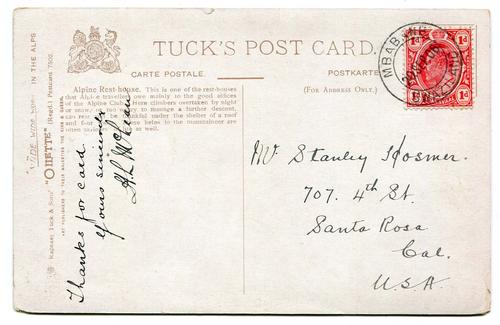 TUCK'S POST CARD.
CARTE POSTALE.
POSTKARTE
(FOR ADDRESS ONLY.)
Alpine Rest-house. This is one of the rest-houses
that Alpine travellers owe mainly to the good offices
of the Alpine Club. Here climbers overtaken by night
or snow, or too weary to manage a further descent,
can rest and be thankful under the shelter of a roof
Thanks for card
Yours sincerely
"WIDE WIDE WORLD" IN THE ALPS
Raphael Tuck & Sons' "OILETTE" (Regd.) Postcards
ART PUBLISHERS TO THEIR MAJESTIES THE KING & QUEEN
MBABANE
1d 1d
Mr Stanley Hosmer.
707. 4th St.
Santa Rosa
Cal.
U.S.A.